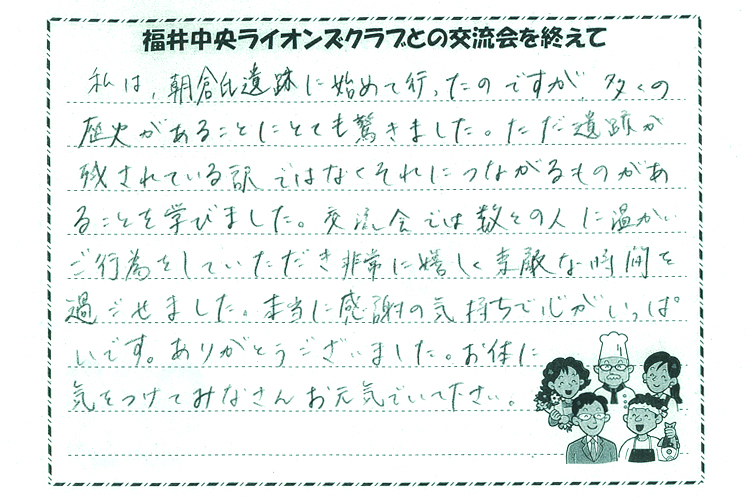 福井中央ライオンズクラブとの交流会を終えて
私は、朝倉氏遺跡に始めて行ったのですが、多くの
歴史があることにとても驚きました。ただ遺跡が
残されている訳ではなくそれにつながるものがあ
ることを学びました。交流会では数々の人に温かい
ご行為をしていただき非常に嬉しく素敵な時間を
過ごせました。本当に感謝の気持ちで心がいっぱ
いです。ありがとうございました。お体に
気をつけてみなさんお元気でいて下さい。